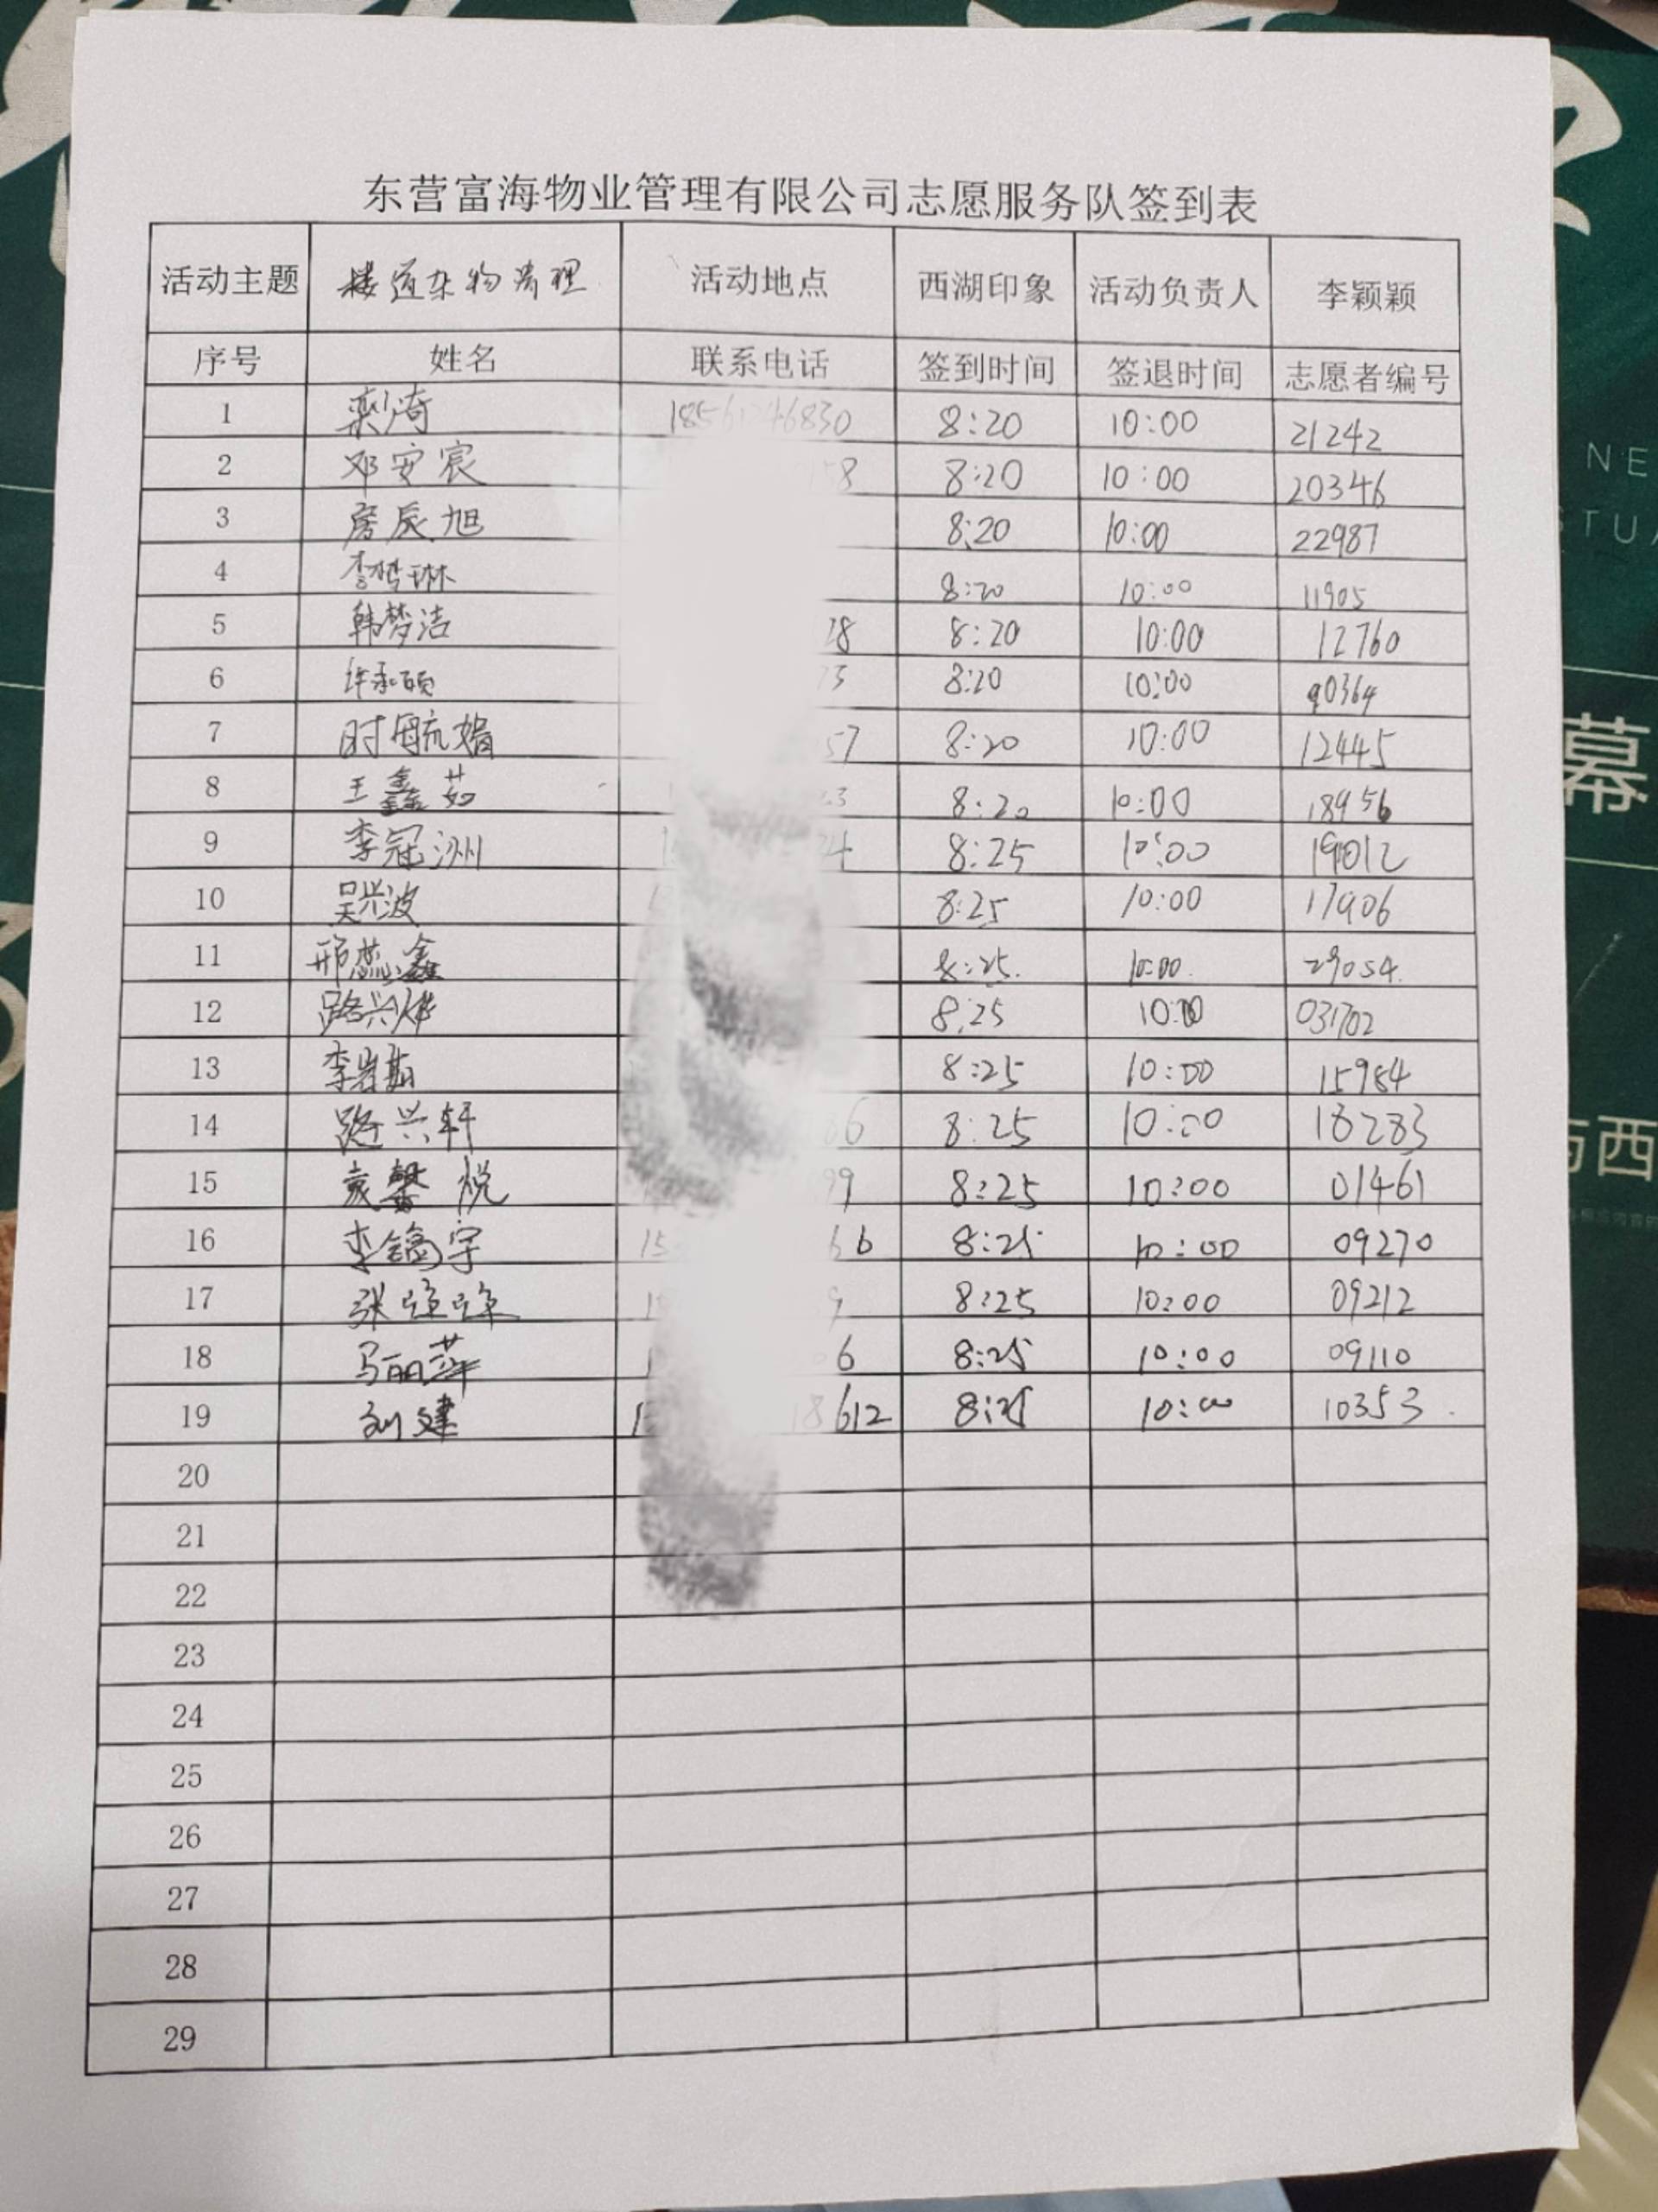 东营富海物业管理有限公司志愿服务队签到表
活动主题 楼道杂物清理 活动地点 西湖印象 活动负责人 李颖颖
序号 姓名 联系电话 签到时间 签退时间 志愿者编号
1 栾湾 8:20 10:00 21242
2 邓安宸 8 8:20 10:00 20346
3 房辰旭 8:20 10:00 22987
4 8:20 10:00 11905
5 韩梦洁 28 8:20 10:00 12760
6 许承硕 8:20 10:00 90364
7 时毓娟 57 8:20 10:00 12445
8 王鑫茹 8:20 10:00 18956
9 李冠洲 8:25 10:00 19012
10 吴兴波 8:25 10:00 17906
11 邢蕊鑫 8:25. 10:00. 29054.
12 路兴烨 8:25 10:00 031702
13 8:25 10:00 15984
14 路兴轩 6 8:25 10:00 18283
15 袁馨悦 99 8:25 10:00 01461
16 李镐宇 15 66 8:25 10:00 09270
17 9 8:25 10:00 09212
18 马丽萍 6 8:25 10:00 09110
19 刘建 1 8612 8:25 10:00 10353.
20
21
22
23
24
25
26
27
28
29
NE
STU
幕
西